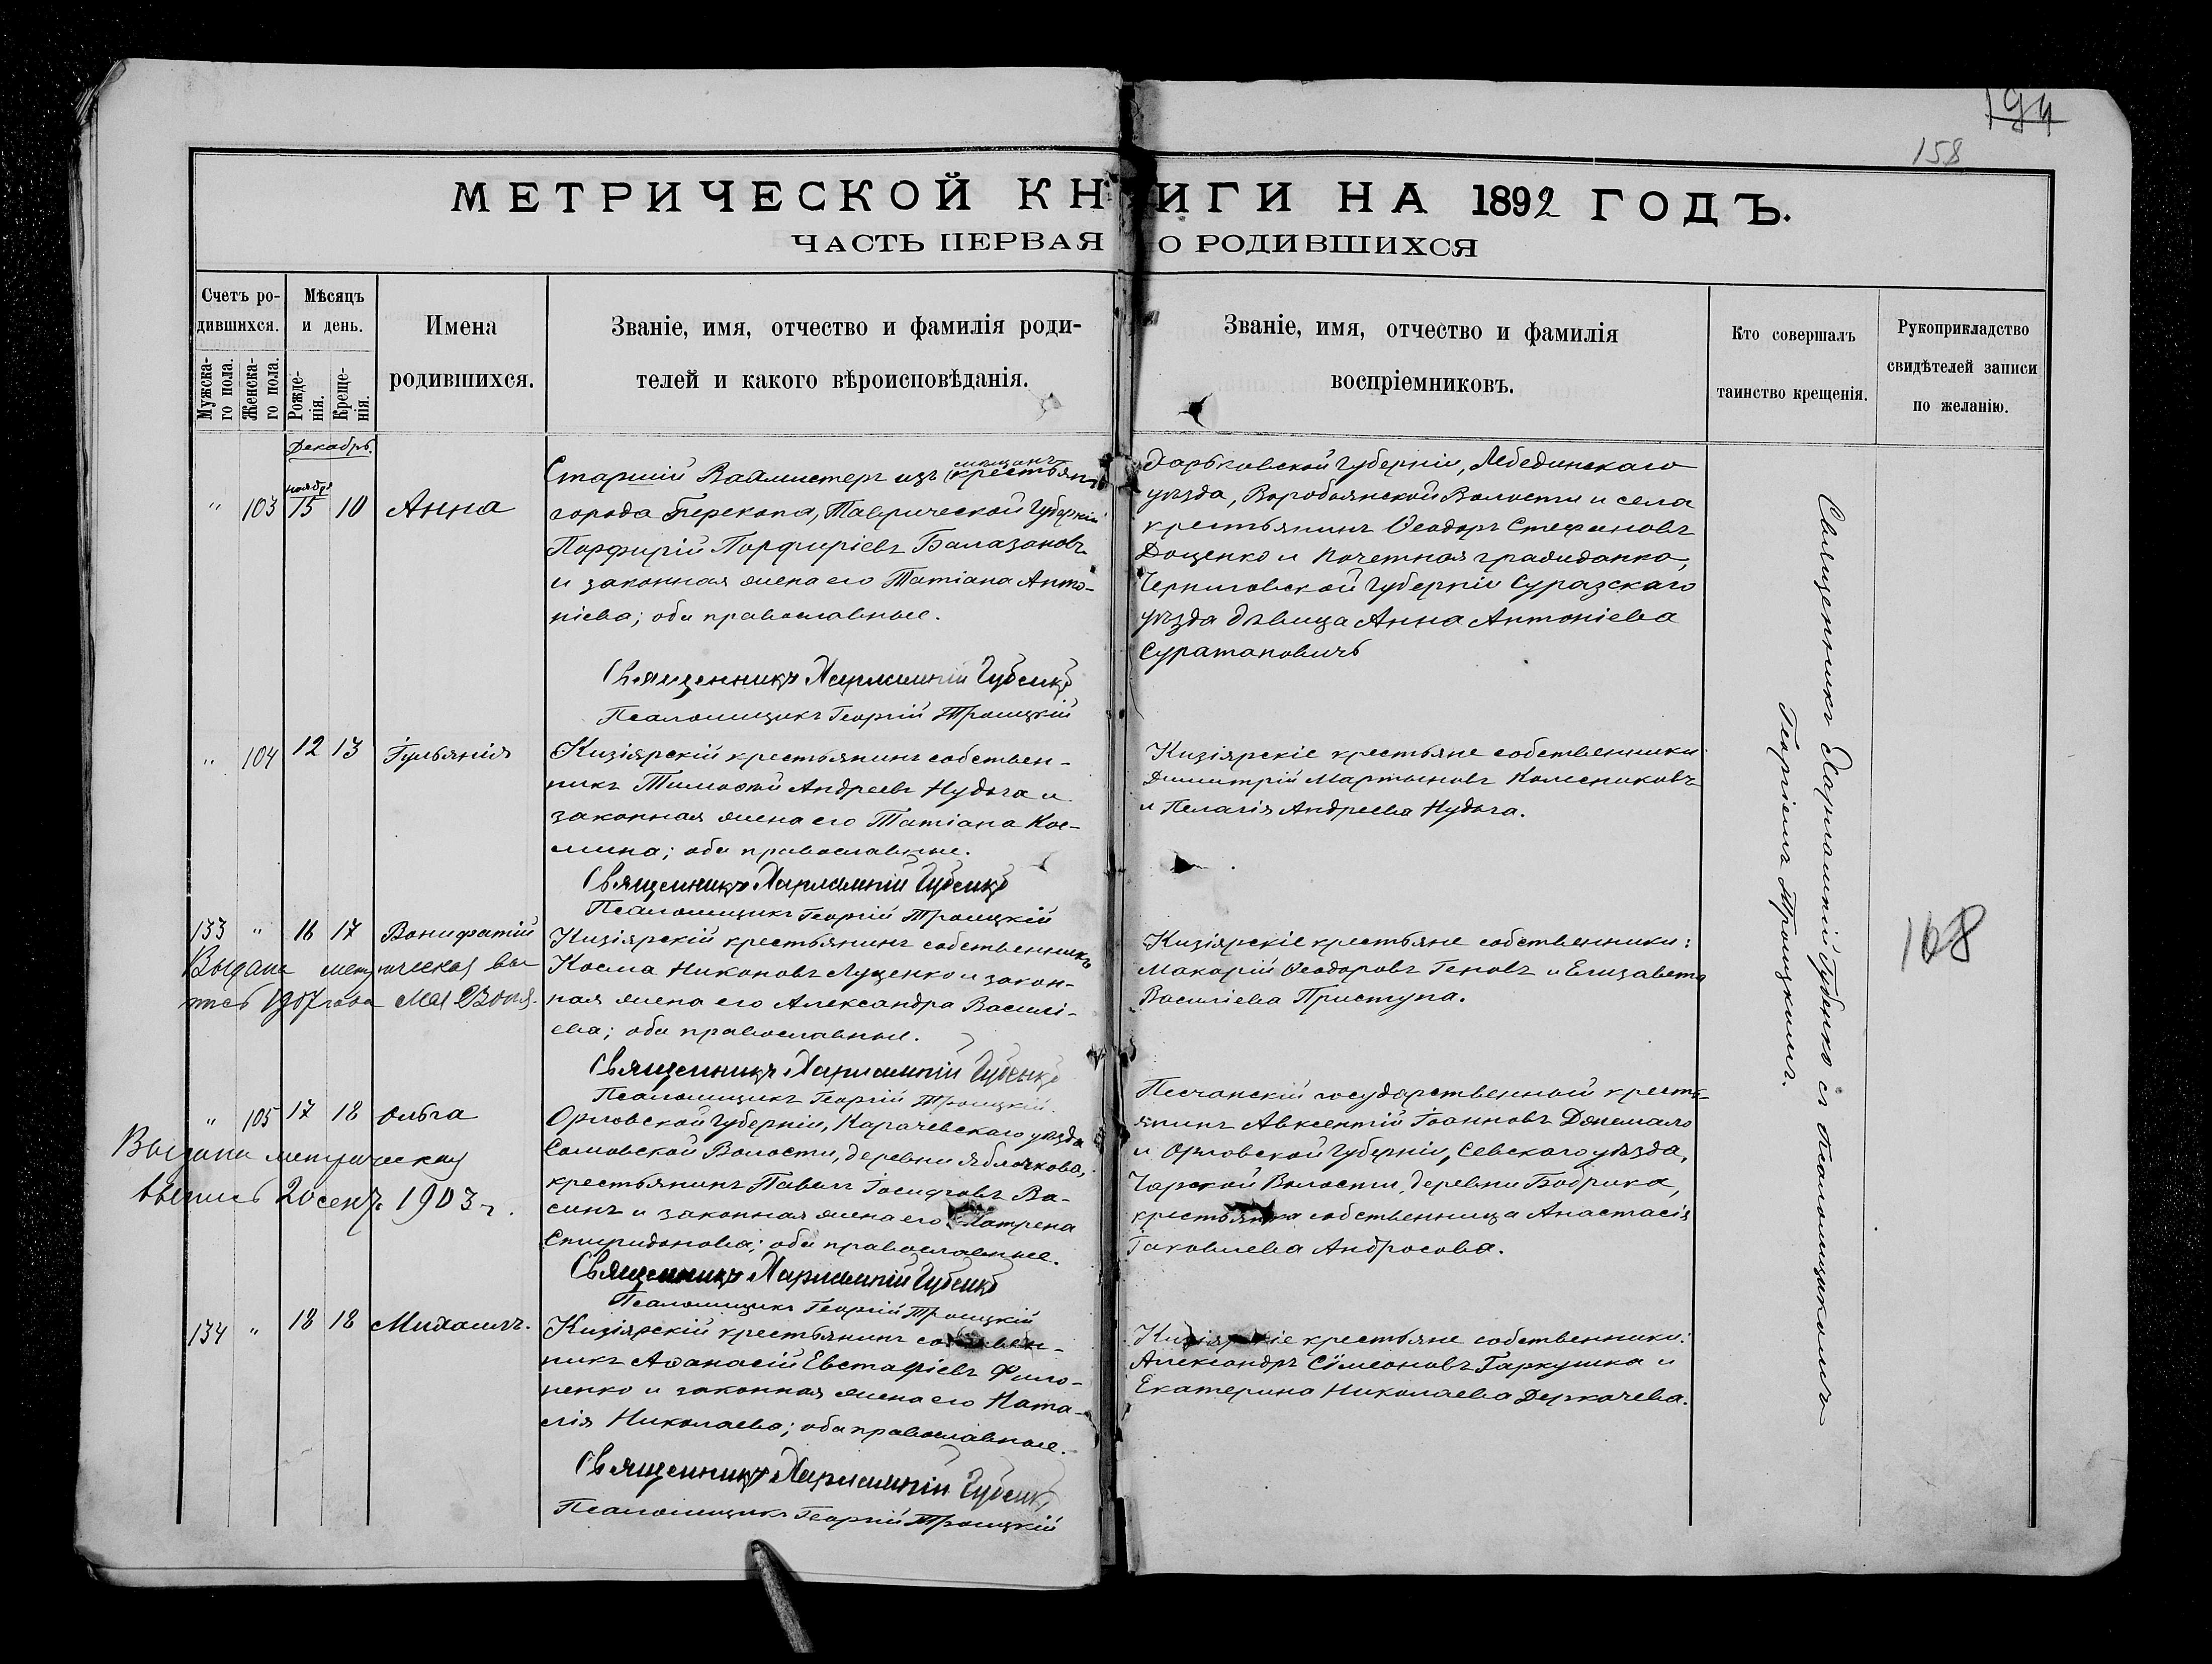 194
158
МЕТРИЧЕСКОЙ КНИГИ НА 1892 ГОДЪ.
ЧАСТЬ ПЕРВАЯ О РОДИВШИХСЯ
Счетъ ро-
дившихся.
Мужска-
го пола.
Женска-
го пола.
Мѣсяцъ
и день.
Рожде-
нія.
Креще-
нія.
Имена
родившихся.
Званіе, имя, отчество и фамилія роди-
телей и какого вѣроисповѣданія.
Званіе, имя, отчество и фамилія
воспріемниковъ.
Кто совершалъ
таинство крещенія.
Рукоприкладство
свидѣтелей записи
по желанію.
Декабрь.
ноября
" 103 15 10 Анна
мѣщанъ
Старшій Вахмистеръ изъ крестьянъ
города Перекопа, Таврической Губерніи
Порфирій Порфиріевъ Балазановъ
и законная жена его Татіана Анто-
ніева; оба православные.
Священникъ Харлампій Губенко
Псаломщикъ Георгій Троицкій
Харьковской Губерніи, Лебединскаго
уѣзда, Воробьянской Волости и села
крестьянинъ Ѳеодоръ Стефановъ
Доценко и Почетная гражданка,
Черниговской Губерніи Суражскаго
уѣзда дѣвица Анна Антоніева
Суратановичъ
" 104 12 13 Іуліанія
Кизіярскій крестьянинъ собствен-
никъ Тимоѳей Андреевъ Нудьга и
законная жена его Татіана Кос-
мина; оба православные.
Священникъ Харлампій Губенко
Псаломщикъ Георгій Троицкій
Кизіярскіе крестьяне собственники:
Димитрій Мартыновъ Колесниковъ
и Пелагія Андреева Нудьга.
133 " 16 17 Вонифатій
Выдана метрическая вы
пись 1907 года Мая
Кизіярскій крестьянинъ собственникъ
Косма Никоновъ Луценко и закон-
ная жена его Александра Василі-
ева; оба православные.
Священникъ Харлампій Губенко
Псаломщикъ Георгій Троицкій.
Кизіярскіе крестьяне собственники:
Макарій Ѳеодоровъ Геновъ и Елизавета
Василіева Приступа.
" 105 17 18 Ольга
Выдана метрическая
выпись 20 сент. 1903 г.
Орловской Губерніи, Карачевскаго уѣзда
Сомовской Волости, деревни Яблочкова,
крестьянинъ Павелъ Іосифовъ Ва-
синъ и законная жена его Матрена
Спиридонова; оба православные.
Священникъ Харлампій Губенко
Псаломщикъ Георгій Троицкій
Песчанскій государственный кресть-
янинъ Авксентій Іоанновъ
и Орловской Губерніи, Севскаго уѣзда,
Волости, деревни Бобрика,
крестьянка собственница Анастасія
Іаковлева Андросова.
134 " 18 18 Михаилъ.
Кизіярскій крестьянинъ собствен-
никъ Аѳанасій Евстафіевъ Фило-
ненко и законная жена его Ната-
лія Николаева; оба православные.
Священникъ Харлампій Губенко
Псаломщикъ Георгій Троицкій
Кизіярскіе крестьяне собственники:
Александръ Сѵмеоновъ Гаркушка и
Екатерина Николаева Деркачева.
Священникъ Харлампій Губенко съ псаломщикомъ
Георгіемъ Троицкимъ.
168